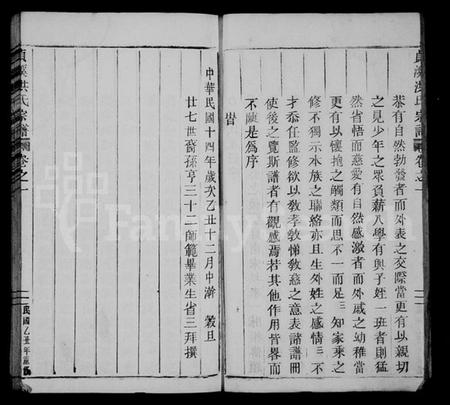 貞溪洪氏宗譜 卷之一
恭有自然勃發者而外表之交際當更有以親切
之見少年之眾負薪入學有與子姪一班者則猛
然省悟而慈愛有自然感激者而外戚之幼稚當
更有以懷抱之觸類而思不一而足三知家乘之
修不獨示水族之聯絡亦且生外姓之感情三不
才忝任監修欲以教孝教悌教慈之意表諸譜冊
使後之覽斯譜者有觀感焉若其他作用皆畧而
不陳是為序
旹
中華民國十四年歲次乙丑十二月中澣 穀旦
廿七世裔孫亨三十二師範畢業生省三拜撰
貞溪洪氏宗譜 卷之一
民國乙丑年